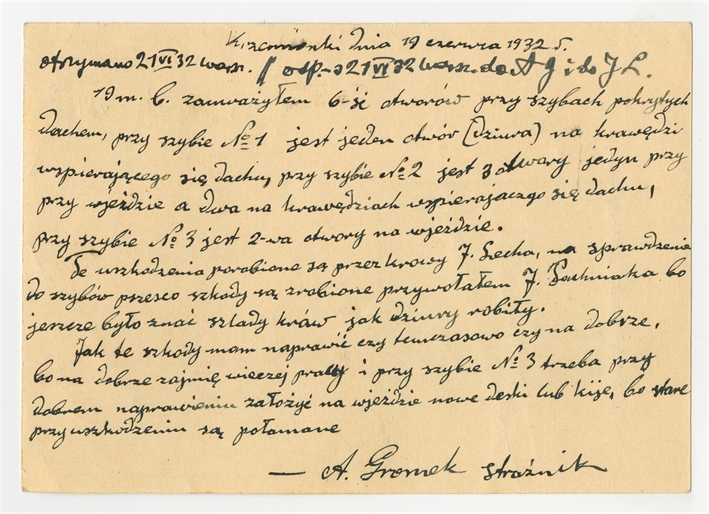 Krzemionki dnia 19 czerwca 1932 r.
otrzymano 21 VI 32 Warsz. // odp. 21 VI 32 Warsz. do A G i do J L.
19 m. b. zauważyłem 6-ść otworów przy szybach pokrytych
dachem, przy szybie № 1 jest jeden otwór (dziura) na krawędzi
wspierającego się dachu, przy szybie № 2 jest 3 otwory jedyn przy
przy wjeździe a dwa na krawędziach wspierającgo się dachu,
przy szybie № 3 jest 2-wa otwory na wjeździe.
Te uszkodzenia porobione są przez krowy J. Lecha, na sprawdzenie
do szybów przesco szkody są zrobione przywołałem J. Pochniaka bo
jeszcze było znać szlady krów jak dziury robiły.
Jak te szkody mam naprawić czy tumczasowo czy na dobrze,
bo na dobrze zajmię wieczej pracy i przy szybie № 3 trzeba przy
dobrem naprawieniu założyć na wjeździe nowe deski lub kije, bo stare
przy uszkodzeniu są połamane
— A. Gromek strażnik